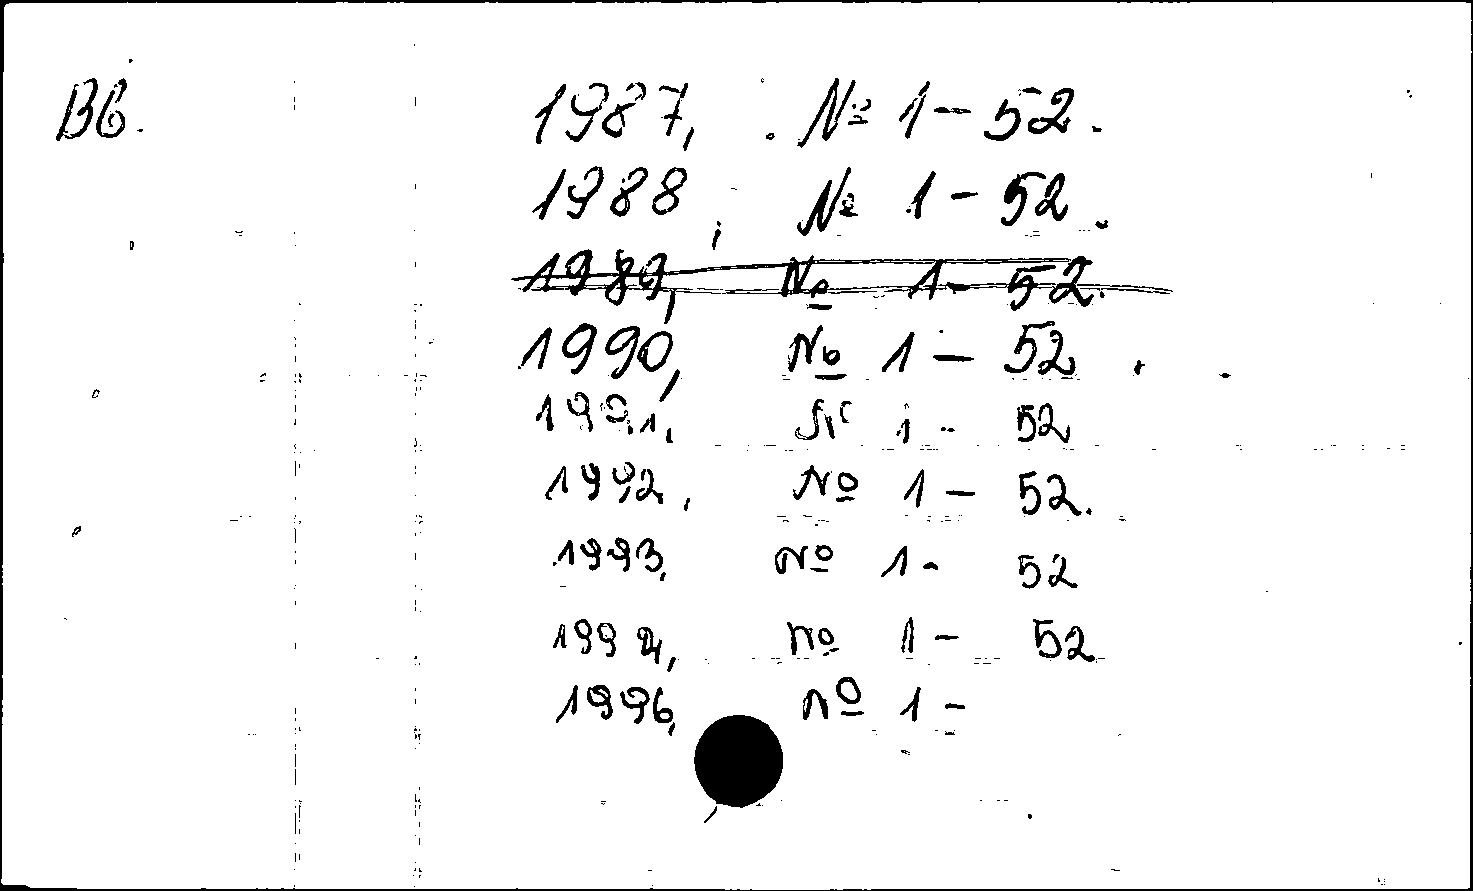 Вб. 1987, № 1 – 52.
1988, № 1 – 52.
1989, № 1 – 52.
1990, № 1 – 52.
1991, № 1 – 52
1992, № 1 – 52.
1993, № 1 - 52
1994, № 1 – 52
1996, № 1 –